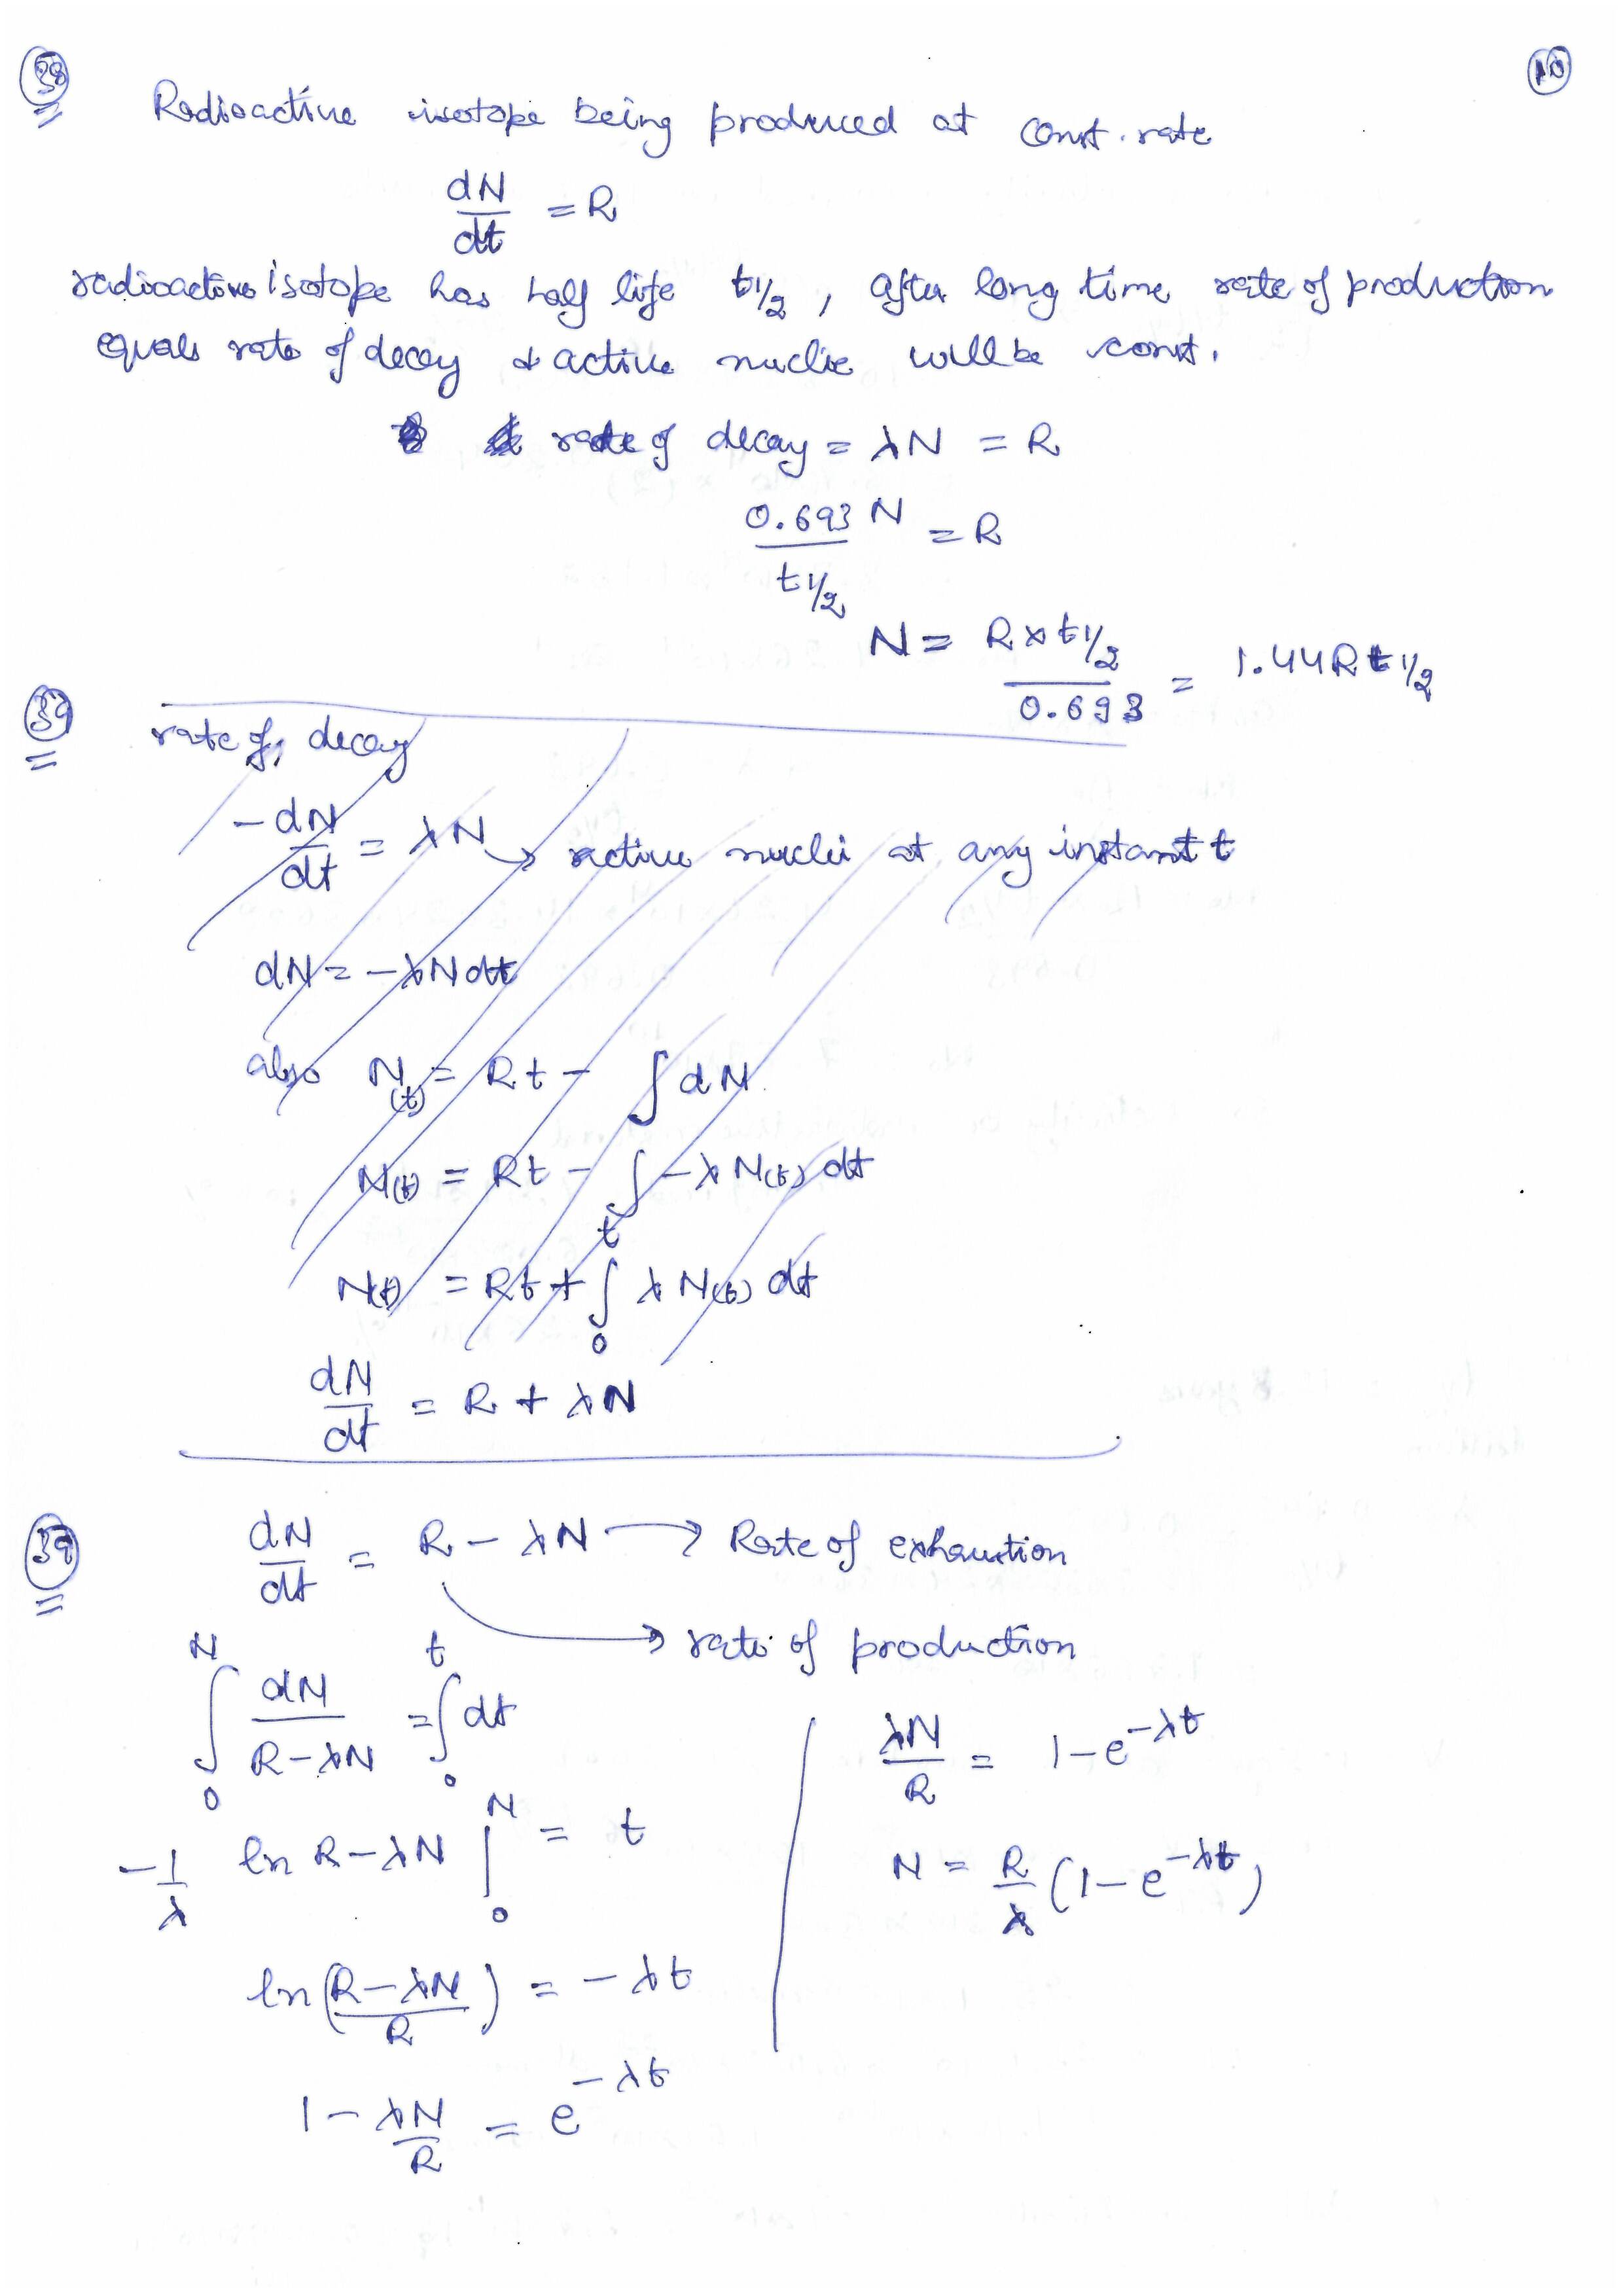 38
10
Radioactive isotope being produced at const. rate
dN/dt = R
radioactive isotope has half life t1/2, after long time rate of production
equals rate of decay & active nuclie will be const.
rate of decay = λN = R
0.693 N / t1/2 = R
N = R × t1/2 / 0.693 = 1.44 R t1/2
39
rate of decay
-dN/dt = λN → active nuclei at any instant t
dN = -λN dt
also N(t) = Rt - ∫ dN
N(t) = Rt - ∫ -λ N(t) dt
N(t) = Rt + ∫₀ᵗ λ N(t) dt
dN/dt = R + λN
39
dN/dt = R - λN → Rate of exhaustion
→ rate of production
∫₀ᴺ dN/(R-λN) = ∫₀ᵗ dt
-1/λ ln R-λN |₀ᴺ = t
ln(R-λN/R) = -λt
1 - λN/R = e^-λt
λN/R = 1 - e^-λt
N = R/λ (1 - e^-λt)